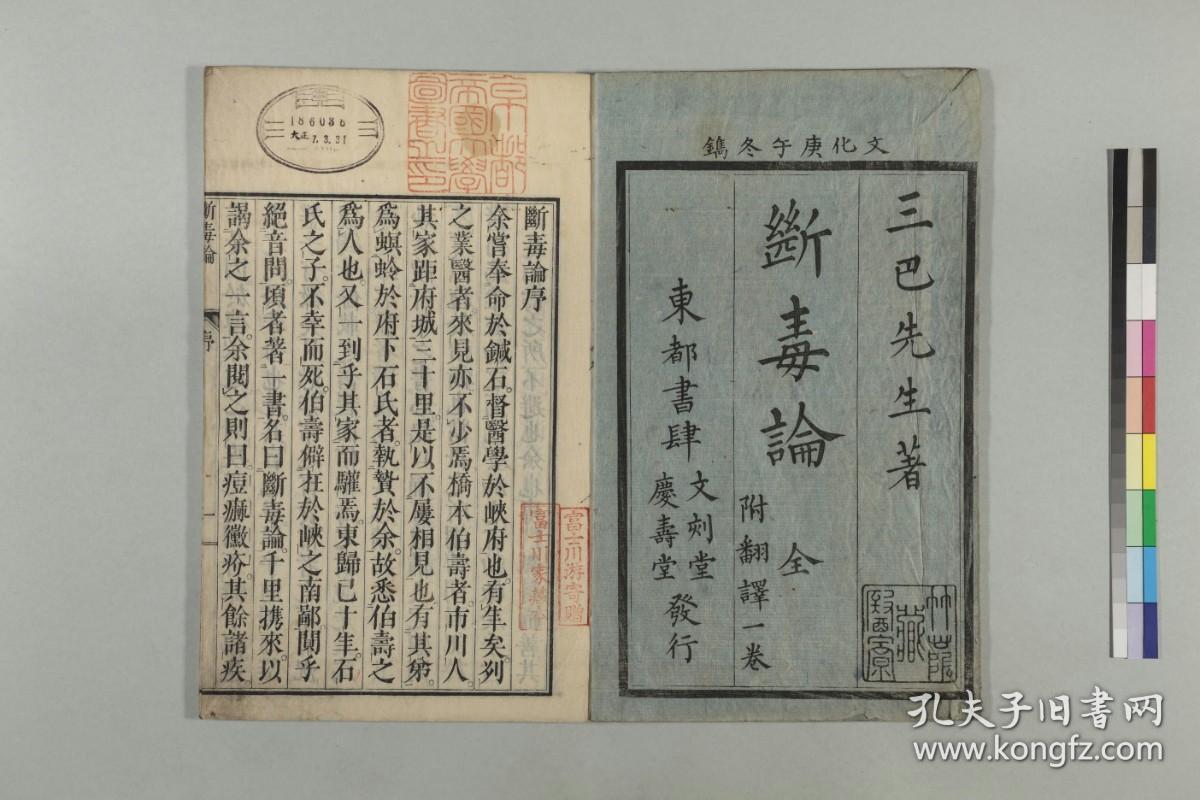 文化庚午冬鐫
三巴先生著
斷毒論 全
附翻譯一卷
東都書肆
文刻堂
慶壽堂
發行
京都帝國大學圖書之印
186036
大正7.3.31
富士川游寄贈
斷毒論序
余嘗奉命於鍼石。督醫學於峽府也。有年矣。列
之業醫者來見亦不少焉橋本伯壽者。市川人。
其家距府城三十里。是以不屢相見也有其弟。
爲螟蛉於府下石氏者。執贄於余。故悉伯壽之
爲人也又一到乎其家而驩焉。東歸已十年。石
氏之子。不幸而死。伯壽僻在於峽之南鄙。闃乎
絕音問。頃者著一書。名曰斷毒論。千里携來。以
謁余之一言。余閱之則曰。痘痲黴疥。其餘諸疾
斷毒論
序
孔夫子旧书网
www.kongfz.com